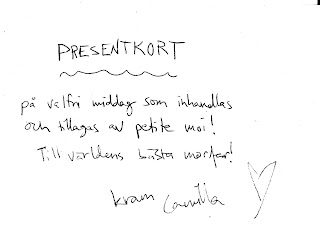 PRESENTKORT
på valfri middag som inhandlas
och tillagas av petite moi!
Till världens bästa morfar!
kram Camilla